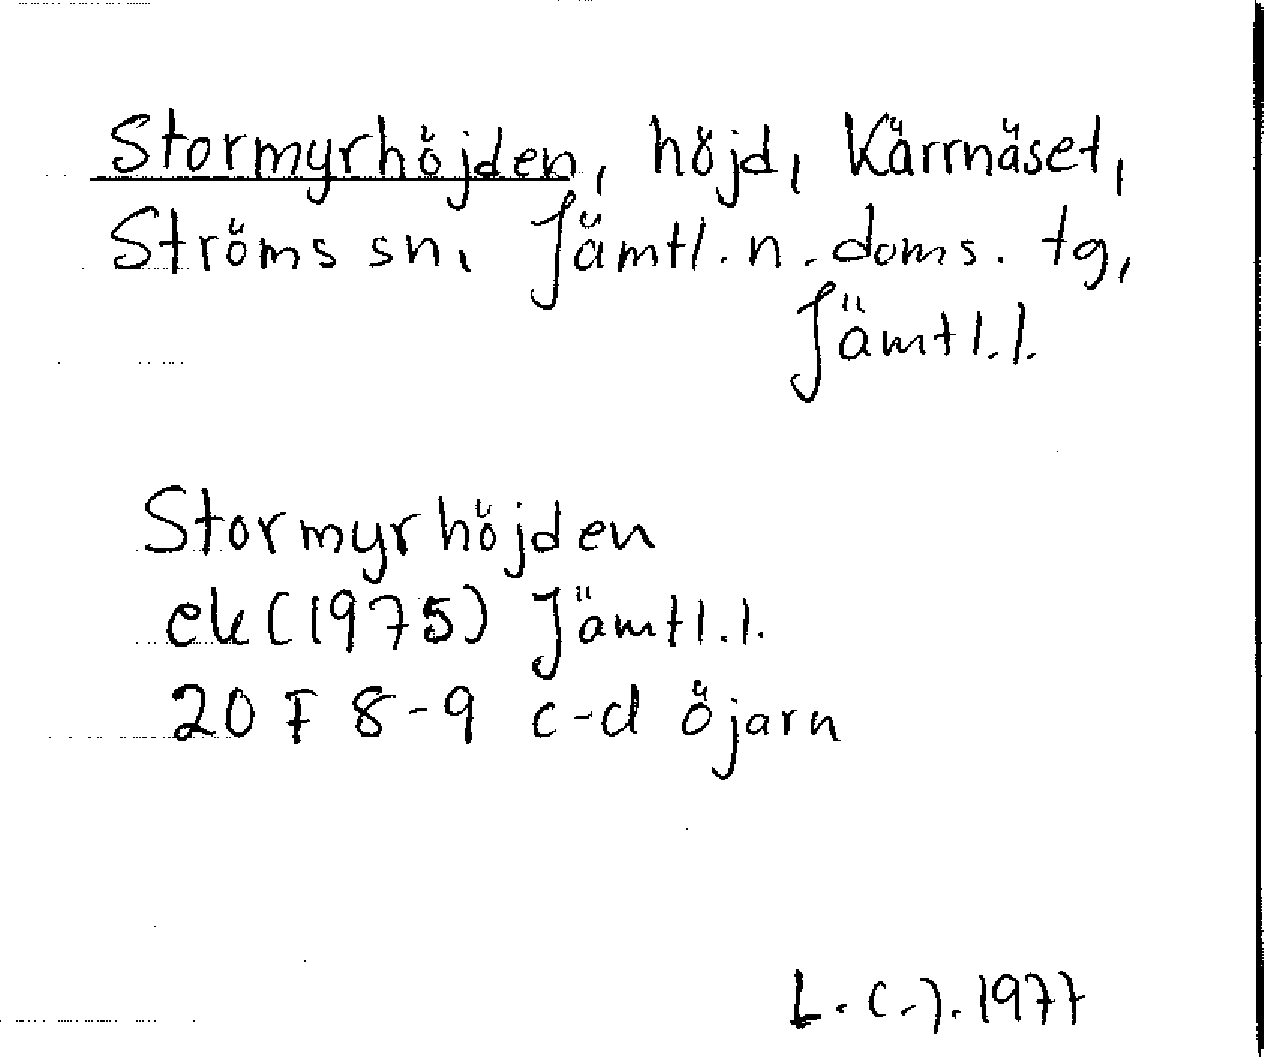 Stormyrhöjden, höjd, Kärrnäset,
Ströms sn, Jämtl. n. doms. tg,
Jämtl. l.
Stormyrhöjden
ek (1975) Jämtl. l.
20 F 8-9 c-d öjarn
L. C. J. 1977